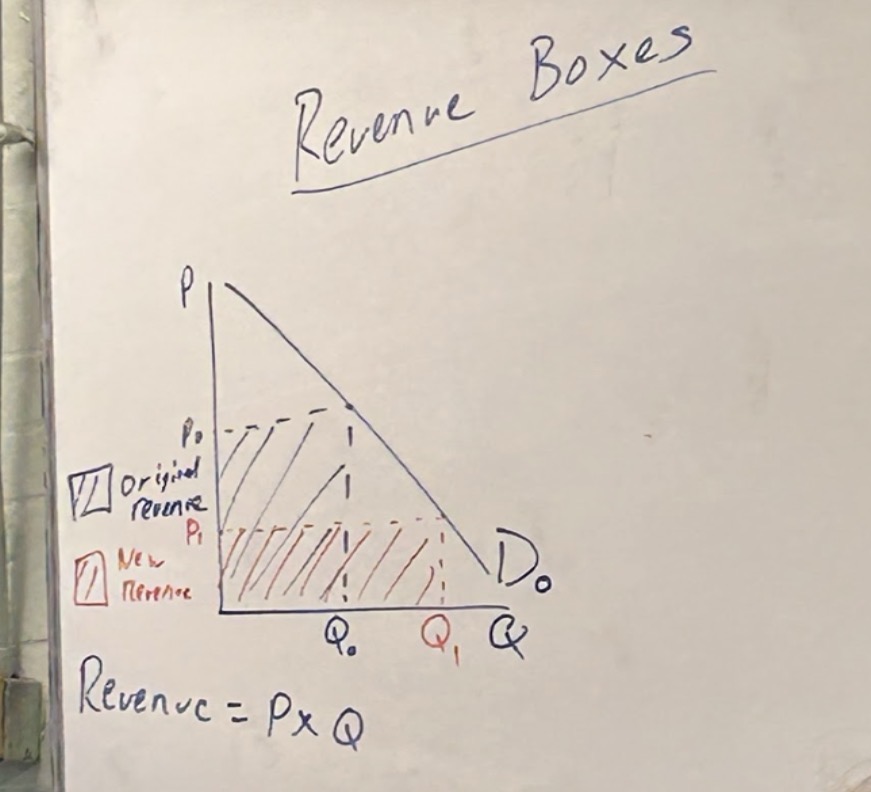 Revenue Boxes
P
P₀
Original
revenue
P₁
New
Revenue
D₀
Q₀ Q₁ Q
Revenue = P x Q